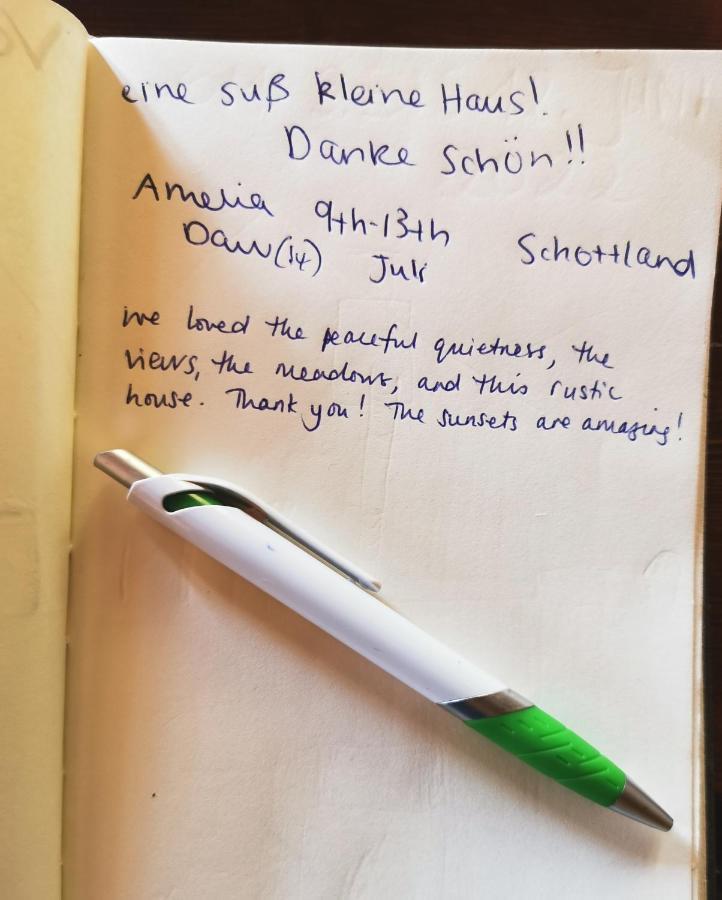 eine suß kleine Haus!
Danke Schön!!
Amelia 9th-13th Schottland
Daw (14) Juli
we loved the peaceful quietness, the
views, the meadows, and this rustic
house. Thank you! The sunsets are amazing!